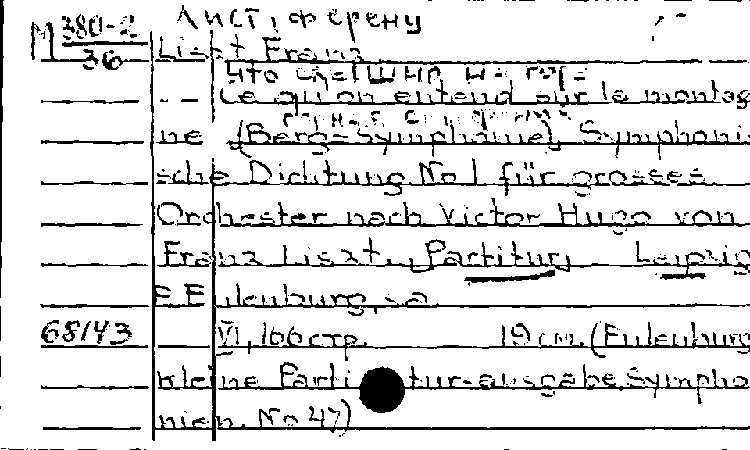 Лист, Ференц
М 380-2
36
Liszt Franz
Что слышно на гор-
Ce qu'on entend sur le montag
ne (Berg-Symphonie). Symphoni
sche Dichtung No 1 für grosses
Orchester nach Victor Hugo von
Franz Liszt. Partitur. Leipzig
E. Eulenburg, s.a.
68143 VI, 166 стр. 19 см. (Eulenburg
kleine Partitur-ausgabe. Sympho
nien. No 47)